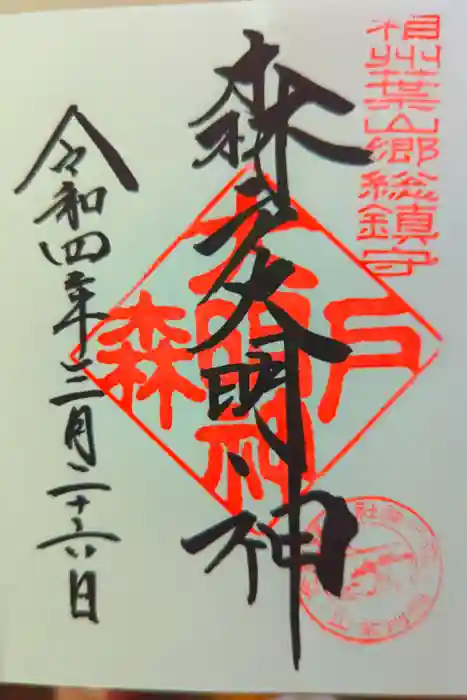 相州葉山郷総鎮守
森戸大明神
森戸
大明神
令和四年三月二十六日